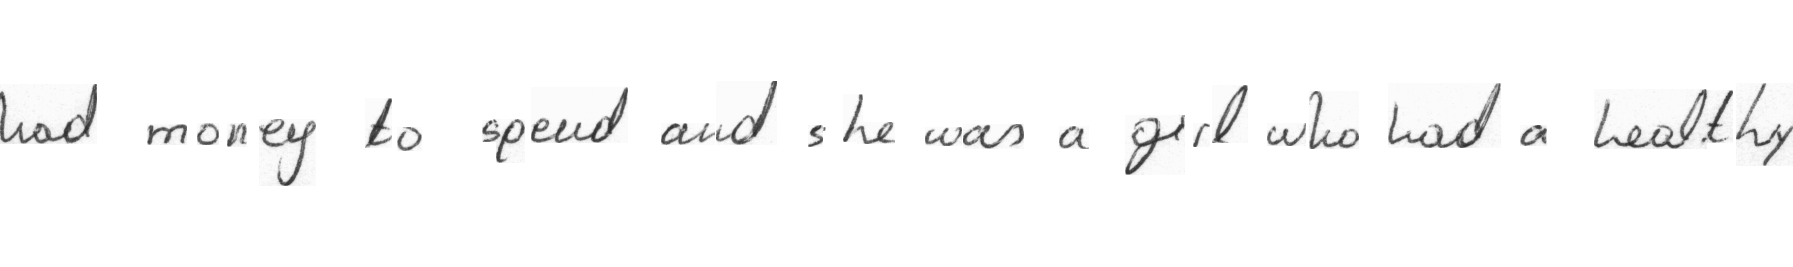 had money to spend and she was a girl who had a healthy